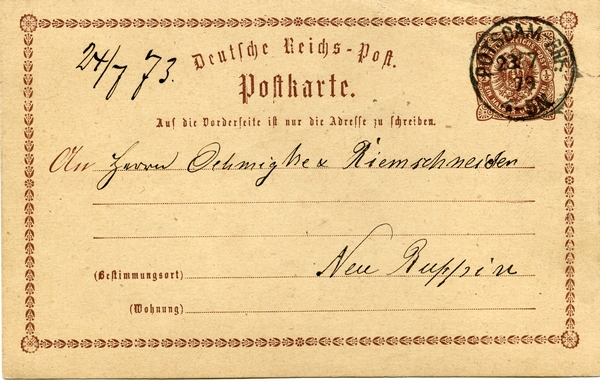 24/7 73.
Deutsche Reichs-Post.
Postkarte.
POTSDAM BHF.
23 7
73
5-6N
Auf die Vorderseite ist nur die Adresse zu schreiben.
An Herrn Oehmigke & Riemschneider
Neu Ruppin
(Bestimmungsort)
(Wohnung)